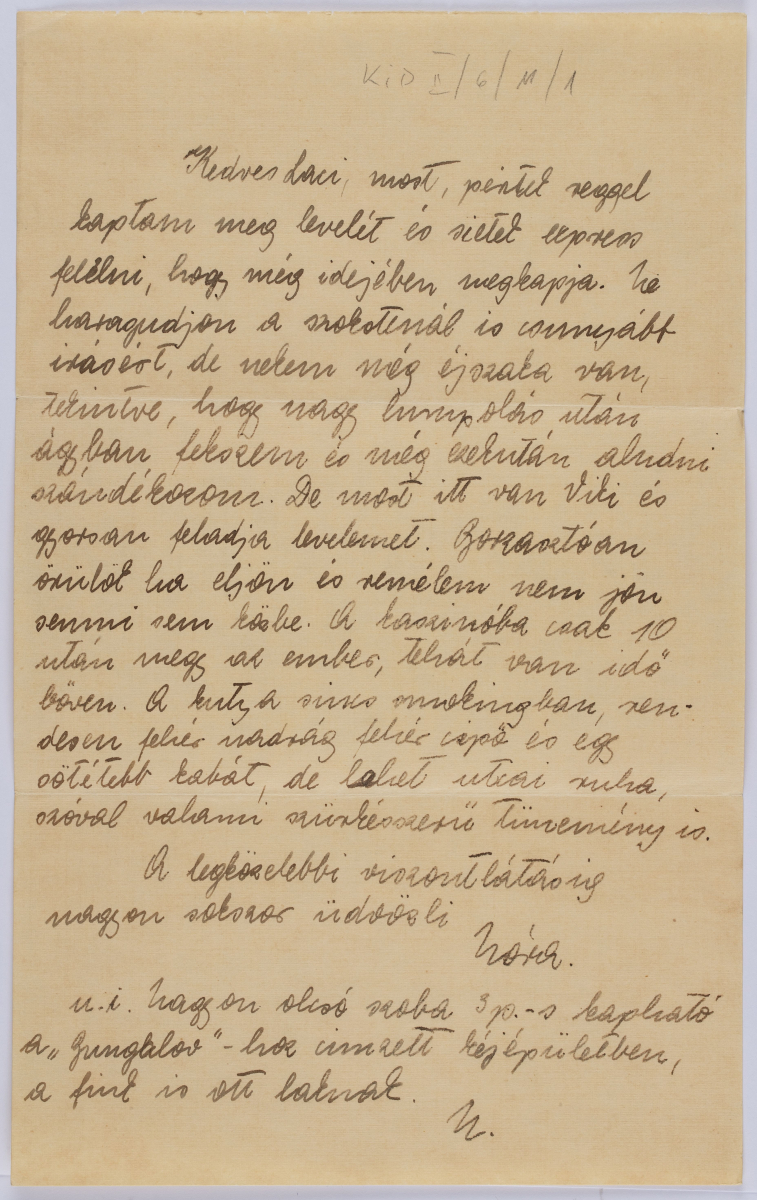 KiD II/6/11/1
Kedves Laci, most, péntek reggel
kaptam meg levelét és sietek express
felelni, hogy még idejében megkapja. Ne
haragudjon a szokottnál is csunyább
irásért, de nekem még éjszaka van,
tekintve, hogy nagy lumpolás után
ágyban fekszem és még ezekután aludni
szándékozom. De most itt van Viki és
gyorsan feladja levelemet. Borzasztóan
örülök ha eljön és remélem nem jön
semmi sem közbe. A kaszinóba csak 10
után megy az ember, tehát van idő
bőven. A kutya sincs smokingban, ren-
desen fehér nadrág fehér cipő és egy
sötétebb kabát, de lehet utcai ruha,
szóval valami szürkésszerű tünemény is.
A legközelebbi viszontlátásig
nagyon sokszor üdvözli
Nóra.
u.i. Nagyon olcsó szoba 3 p.-s kapható
a „Bungalov"-hoz címzett kéjépületben,
a fiuk is ott laknak.
N.